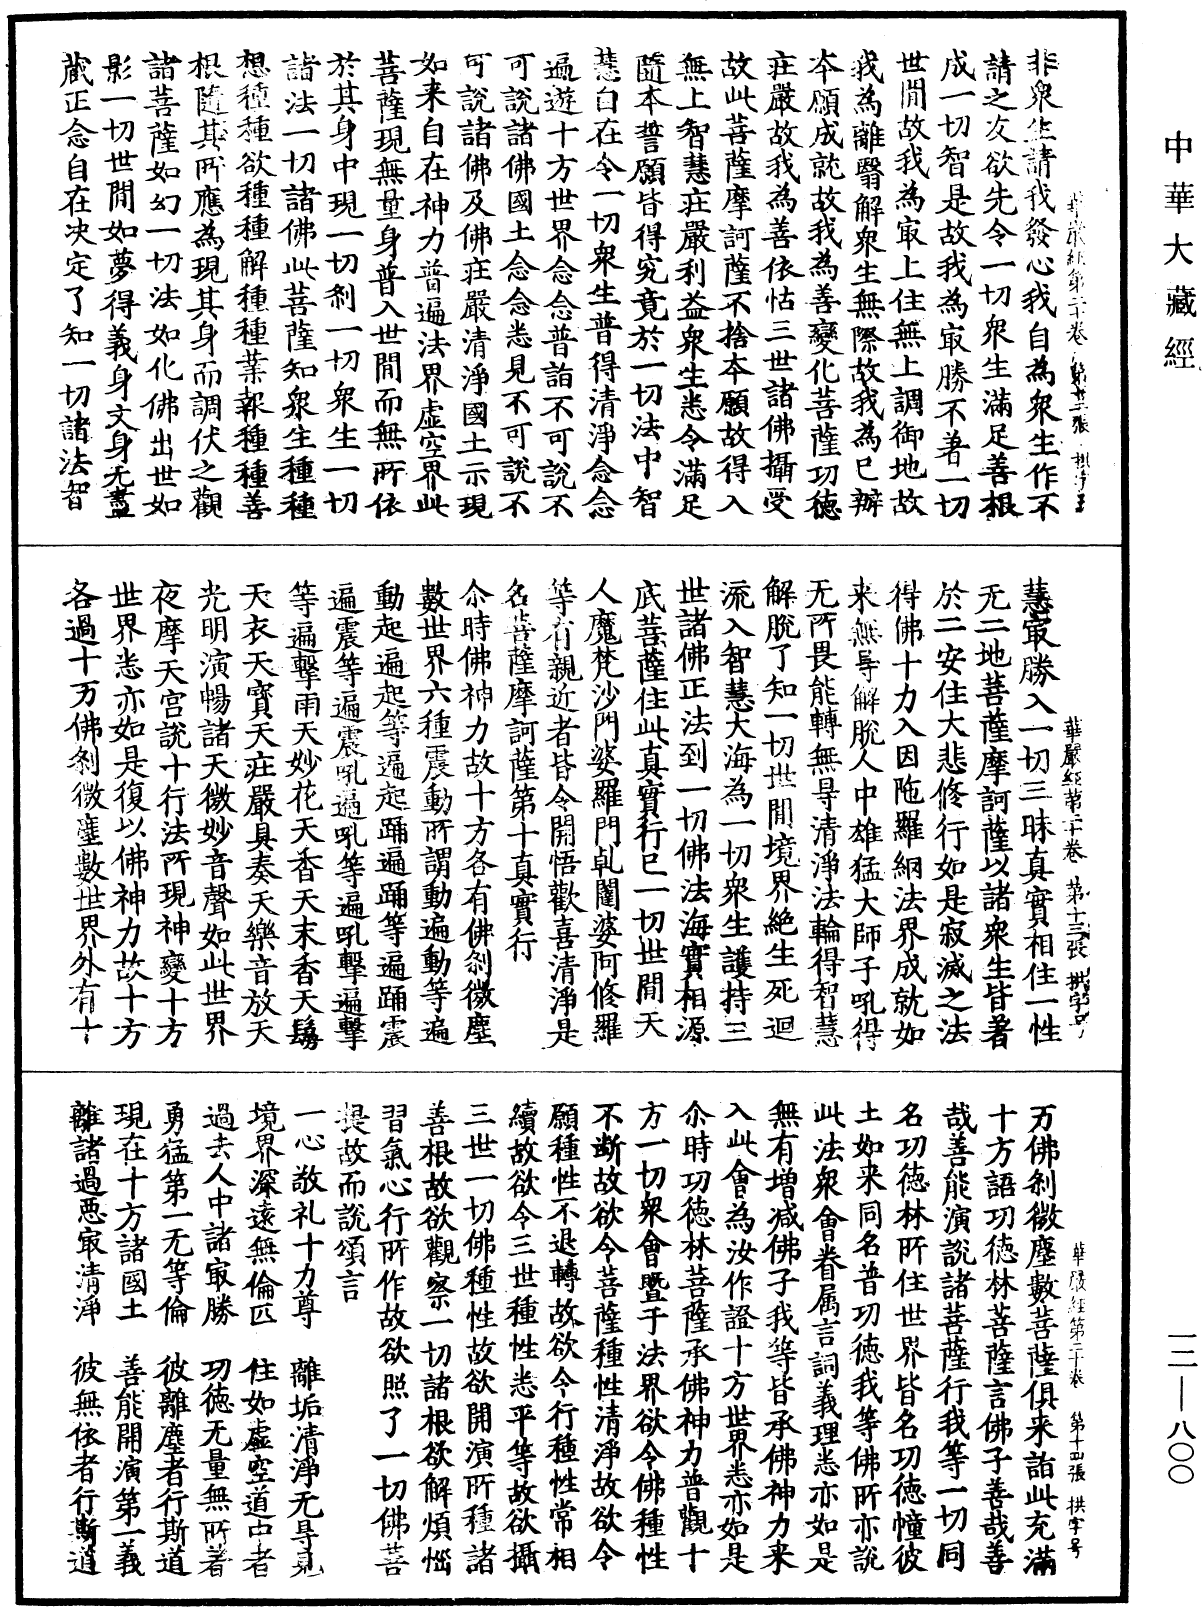 中華大藏經
非衆生請我發心我自為衆生作不
請之友欲先令一切衆生滿足善根
成一切智是故我為㝡勝不著一切
世間故我為㝡上住無上調御地故
我為離翳解衆生無際故我為已辦
本願成就故我為善變化菩薩功德
莊嚴故我為善依怙三世諸佛攝受
故此菩薩摩訶薩不捨本願故得入
無上智慧莊嚴利益衆生悉令滿足
隨本誓願皆得究竟於一切法中智
慧自在令一切衆生普得清淨念念
遍遊十方世界念念普詣不可說不
可說諸佛國土念念悉見不可說不
可說諸佛及佛莊嚴清淨國土示現
如来自在神力普遍法界虛空界此
菩薩現無量身普入世間而無所依
於其身中現一切刹一切衆生一切
諸法一切諸佛此菩薩知衆生種種
想種種欲種種解種種業報種種善
根隨其所應為現其身而調伏之觀
諸菩薩如幻一切法如化佛出世如
影一切世間如夢得義身文身无盡
蔵正念自在决定了知一切諸法智
華嚴經第二十卷 第十三張 拱字号
慧㝡勝入一切三昧真實相住一性
无二地菩薩摩訶薩以諸衆生皆著
於二安住大悲修行如是寂滅之法
得佛十力入因陁羅網法界成就如
来無导解脫人中雄猛大師子吼得
无所畏能轉無导清淨法輪得智慧
解脫了知一切世間境界絶生死迴
流入智慧大海為一切衆生護持三
世諸佛正法到一切佛法海實相源
底菩薩住此真實行已一切世間天
人魔梵沙門婆羅門乹闥婆阿修羅
等有親近者皆令開悟歡喜清淨是
名菩薩摩訶薩第十真實行
尒時佛神力故十方各有佛刹微塵
數世界六種震動所謂動遍動等遍
動起遍起等遍起踊遍踊等遍踊震
遍震等遍震吼遍吼等遍吼擊遍擊
等遍擊雨天妙花天香天末香天鬘
天衣天寶天莊嚴具奏天樂音放天
光明演暢諸天微妙音聲如此世界
夜摩天宫說十行法所現神變十方
世界悉亦如是復以佛神力故十方
各過十万佛刹微塵數世界外有十
華嚴經第二十卷 第十四張 拱字号
万佛刹微塵數菩薩俱来詣此充滿
十方語功德林菩薩言佛子善哉善
哉善能演說諸菩薩行我等一切同
名功德林所住世界皆名功德幢彼
土如来同名普功德我等佛所亦說
此法衆會眷属言詞義理悉亦如是
無有增減佛子我等皆承佛神力来
入此會為汝作證十方世界悉亦如是
尒時功德林菩薩承佛神力普觀十
方一切衆會暨于法界欲令佛種性
不斷故欲令菩薩種性清淨故欲令
願種性不退轉故欲令行種性常相
續故欲令三世種性悉平等故欲攝
三世一切佛種性故欲開演所種諸
善根故欲觀察一切諸根欲解煩惱
習氣心行所作故欲照了一切佛菩
提故而說頌言
一心敬礼十力尊 離垢清淨无导見
境界深遠無倫匹 住如虛空道中者
過去人中諸㝡勝 功德无量無所著
勇猛第一无等倫 彼離塵者行斯道
現在十方諸國土 善能開演第一義
離諸過惡㝡清淨 彼無依者行斯道
一二—八〇〇